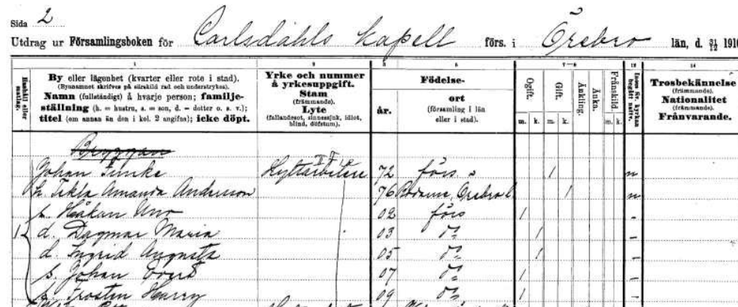 Sida 2
Utdrag ur Församlingsboken för Carlsdahls kapell förs. i Örebro län, d. 31/12 1910
1 2 3 4 5 6 7–8 13 14
Hushåll eller matlag.
By eller lägenhet (kvarter eller rote i stad).
(Bynamnet skrifves på särskild rad och understrykes).
Namn (fullständigt) å hvarje person; Familje-
ställning (h. = hustru, s. = son, d. = dotter o. s. v.);
titel (om annan än den i kol. 2 angifna); icke döpt.
Yrke och nummer
å yrkesuppgift.
Stam
(främmande).
Lyte
(fallandesot, sinnessjuk, idiot,
blind, döfstum).
Födelse-
år.
ort
(församling i län
eller i stad).
Ogift. m. k.
Gift. m. k.
Änkling.
Änka.
Frånskild. m. k.
Trosbekännelse
(främmande).
Nationalitet
(främmande).
Frånvarande.
Bryggan
Johan Hyttarbetare 72 förs. 1
h. Tekla Amanda Andersson 76 Örebro l. 1
s. Håkan Uno 02 förs 1
1 d. Dagmar Maria 03 d:o 1
d. Ingrid Augusta 05 d:o 1
s. Johan 07 d:o 1
s. Harry 09 d:o 1